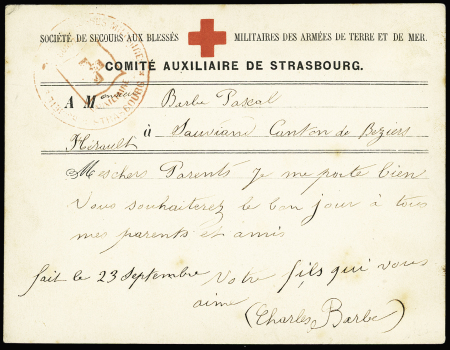 SOCIÉTÉ DE SECOURS AUX BLESSÉS MILITAIRES DES ARMÉES DE TERRE ET DE MER.
COMITÉ AUXILIAIRE DE STRASBOURG.
A Monsieur Barbe Pascal
à Sauvian Canton de Beziers
Hérault
Meschers Parents Je me porte bien
Vous souhaiterez le bon jour à tous
mes parents et amis
fait le 23 Septembre Votre fils qui vous
aime
(Charles Barbe)